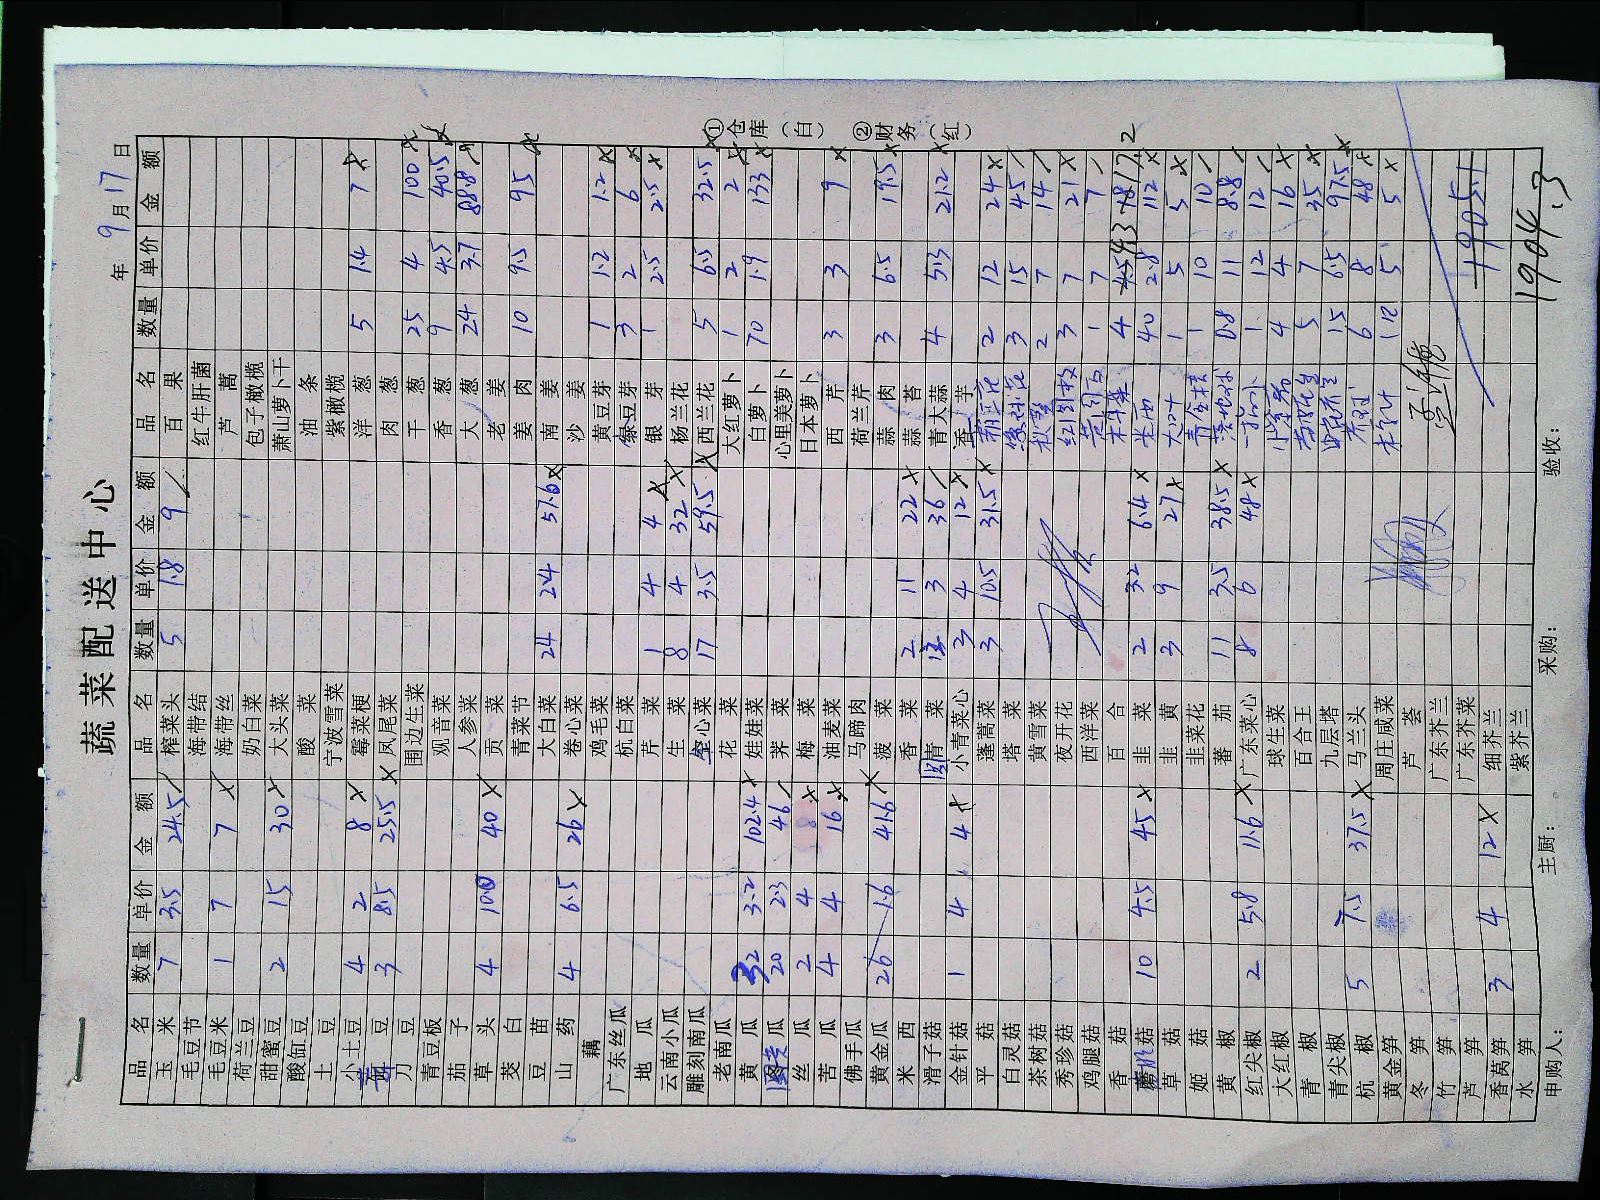 蔬菜配送中心
年 9月17日
品名 数量 单价 金额 品名 数量 单价 金额 品名 数量 单价 金额
玉米 7 3.5 24.5 榨菜头 5 1.8 9 百果
毛豆节 海带结 红牛肝菌
毛豆米 1 7 7 海带丝 芦蒿
荷兰豆 奶白菜 包子橄榄
甜蜜豆 2 15 30 大头菜 萧山萝卜干
酸缸豆 酸菜 油条
土豆 宁波雪菜 紫橄榄
小土豆 4 2 8 霉菜梗 洋葱 5 1.4 7
豆 3 8.5 25.5 凤尾菜 肉葱
刀豆 围边生菜 干葱 25 4 100
青豆板 观音菜 香葱 9 4.5 40.5
茄子 人参菜 大葱 24 3.7 88.8
草头 4 10 40 贡菜 老姜
茭白 青菜节 姜肉 10 9.5 95
豆苗 大白菜 24 24 57.6 南姜
山药 4 6.5 26 卷心菜 沙姜
藕 鸡毛菜 黄豆芽 1 1.2 1.2
广东丝瓜 杭白菜 绿豆芽 3 2 6
地瓜 芹菜 1 4 4 银芽 1 2.5 2.5
云南小瓜 生菜 8 4 32 杨兰花
雕刻南瓜 空心菜 17 3.5 59.5 西兰花 5 6.5 32.5
老南瓜 花菜 大红萝卜 1 2 2
黄瓜 32 3.2 102.4 娃娃菜 白萝卜 70 1.9 133
瓜 20 2.3 46 荠菜 心里美萝卜
丝瓜 2 4 梅菜 日本萝卜
苦瓜 4 4 16 油麦菜 西芹 3 3 9
佛手瓜 马蹄肉 荷兰芹
黄金瓜 26 1.6 41.6 菠菜 蒜肉 3 6.5 19.5
米西 香菜 2 11 22 蒜苔
滑子菇 青菜 12 3 36 青大蒜 4 5.3 21.2
金针菇 1 4 4 小青菜心 3 4 12 香芋
平菇 蓬蒿菜 3 10.5 31.5 2 12 24
白灵菇 塔菜 3 15 45
茶树菇 黄雪菜 2 7 14
秀珍菇 夜开花 3 7 21
鸡腿菇 西洋菜 1 7 7
香菇 百合 4 4.3 17.2
蘑菇 10 4.5 45 韭菜 2 3.2 6.4 40 2.8 112
草菇 韭黄 3 9 27 1 5 5
姬菇 韭菜花 1 10 10
黄椒 蕃茄 11 3.5 38.5 0.8 11 8.8
红尖椒 2 5.8 11.6 广东菜心 8 6 48 1 12 12
大红椒 球生菜 4 4 16
青椒 百合王 5 7 35
青尖椒 九层塔 15 6.5 97.5
杭椒 5 7.5 37.5 马兰头 6 8 48
黄金笋 周庄咸菜 5 5
冬笋 芦荟
竹笋 广东芥兰
芦笋 广东芥菜 1905.1
香莴笋 3 4 12 细芥兰
水笋 紫芥兰 1904.3
申购人： 主厨： 采购： 验收：
①仓库（白） ②财务（红）